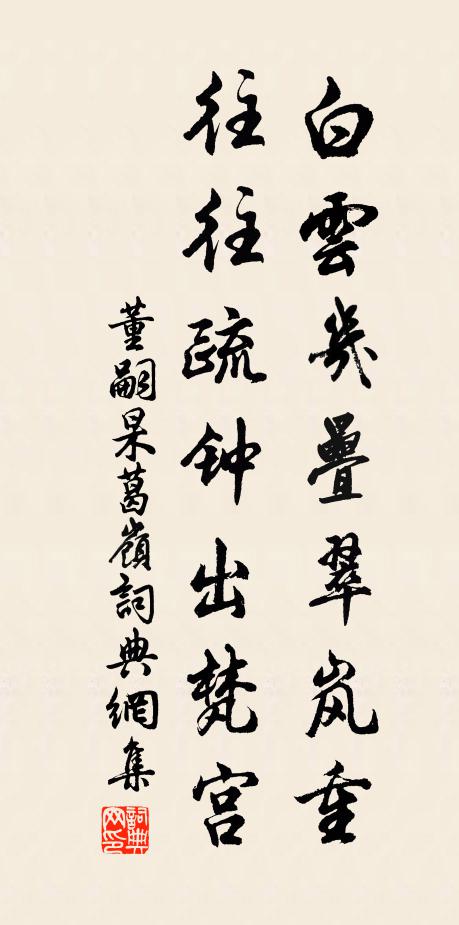 白雲幾疊翠岚重
往往疏钟出梵宫
董嗣杲葛嶺詞典網集
詞典網印